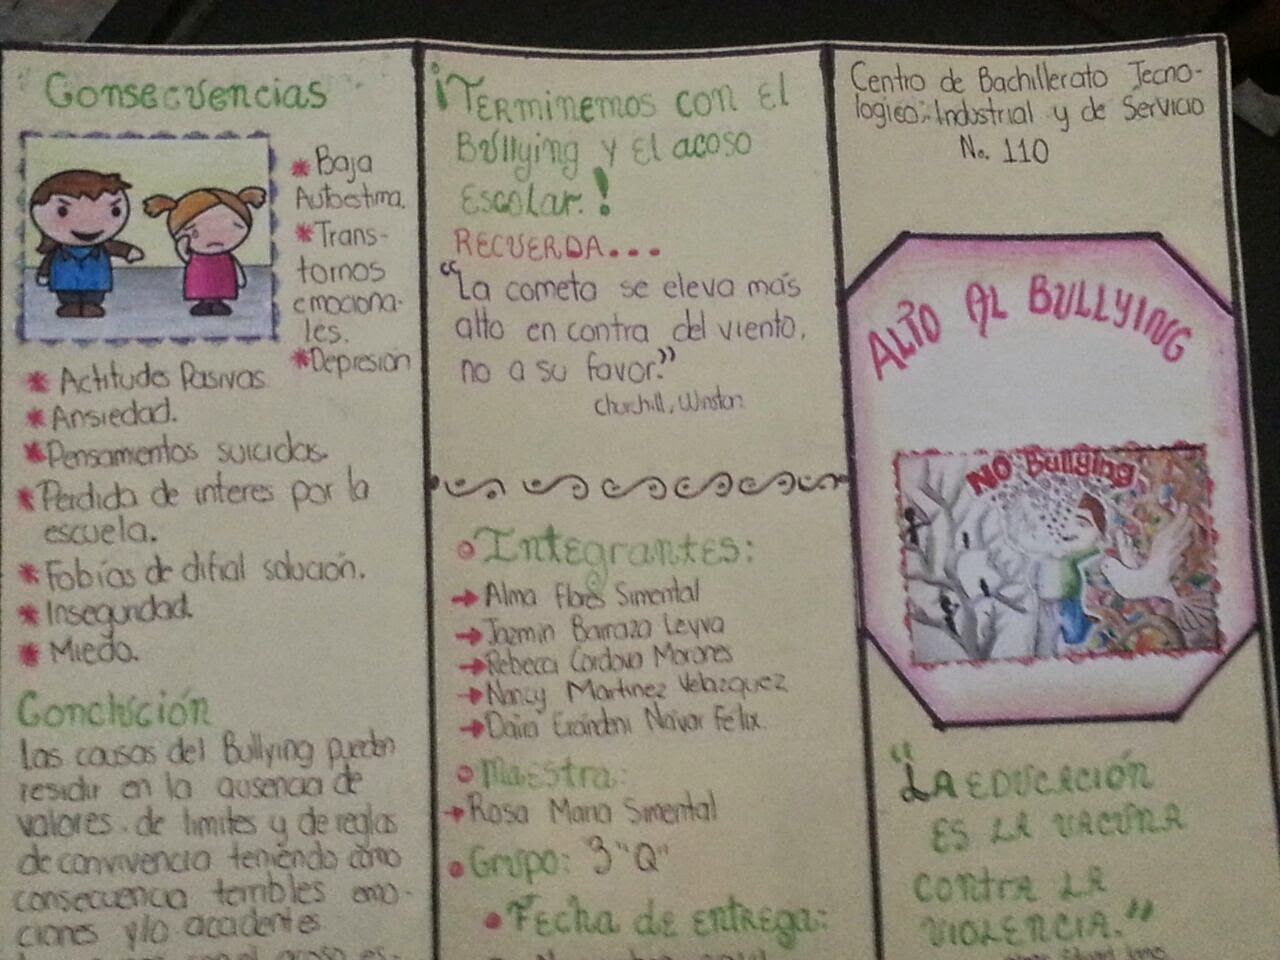 Consecuencias
* Baja
Autoestima.
* Trans-
tornos
emociona-
les.
* Depresión
* Actitudes Pasivas
* Ansiedad.
* Pensamentos suicidas.
* Perdida de interes por la
escuela.
* Fobias de dificil solución.
* Inseguridad.
* Miedo.
Conclución
Las causas del Bullying pueden
residir en la ausencia de
valores, de limites y de reglas
de convivencia teniendo como
consecuencia terribles emo-
ciones y/o accidentes
¡Terminemos con el
Bullying y el acoso
escolar.!
RECUERDA...
"La cometa se eleva más
alto en contra del viento,
no a su favor."
Churchill, Winston
Integrantes:
→ Alma Flores Simental
→ Jazmin Barraza Leyva
→ Rebecca Cordova Morones
→ Nancy Martinez Velazquez
→ Daira Navar Felix.
Maestra:
→ Rosa Maria Simental
Grupo: 3 "Q"
Fecha de entrega:
Centro de Bachillerato Tecno-
logico: Industrial y de Servicio
No. 110
ALTO AL BULLYING
NO Bullying
"LA EDUCACIÓN
ES LA VACUNA
CONTRA LA
VIOLENCIA."